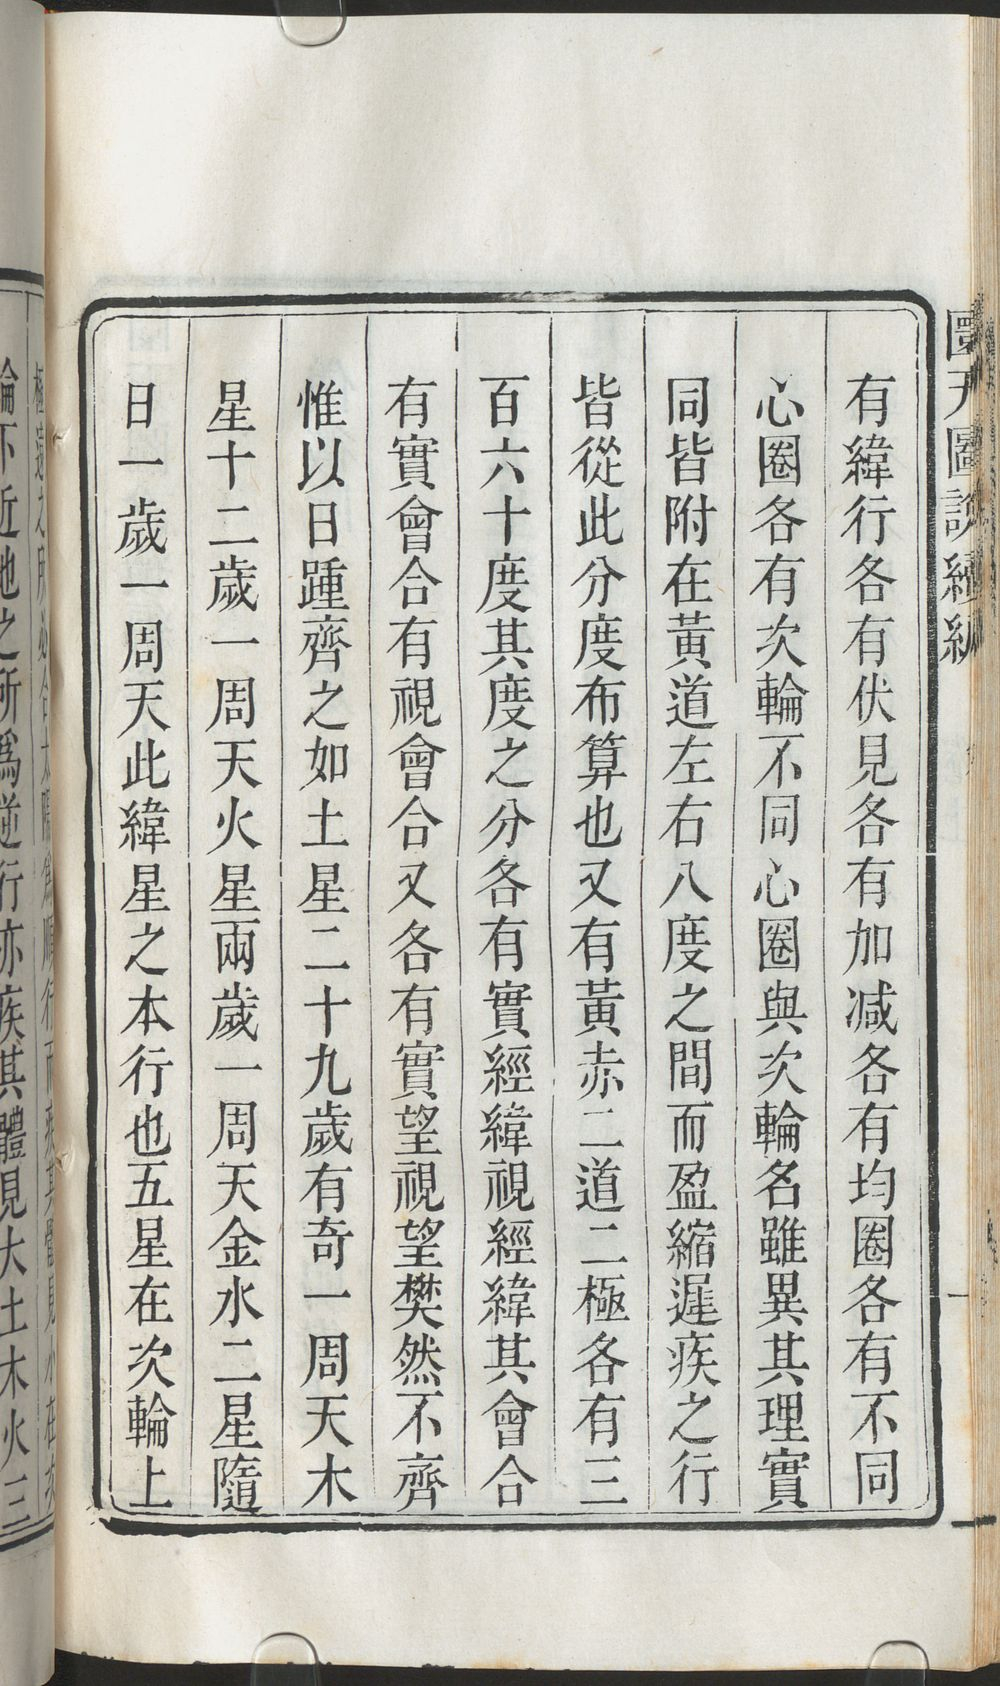 圜天圖說續編
有緯行各有伏見各有加減各有均圈各有不同
心圈各有次輪不同心圈與次輪名雖異其理實
同皆附在黃道左右八度之間而盈縮遲疾之行
皆從此分度布算也又有黃赤二道二極各有三
百六十度其度之分各有實經緯視經緯其會合
有實會合有視會合又各有實望視望樊然不齊
惟以日踵齊之如土星二十九歲有奇一周天木
星十二歲一周天火星兩歲一周天金水二星隨
日一歲一周天此緯星之本行也五星在次輪上
輪下近地之所為逆行亦疾其體見大土木火三